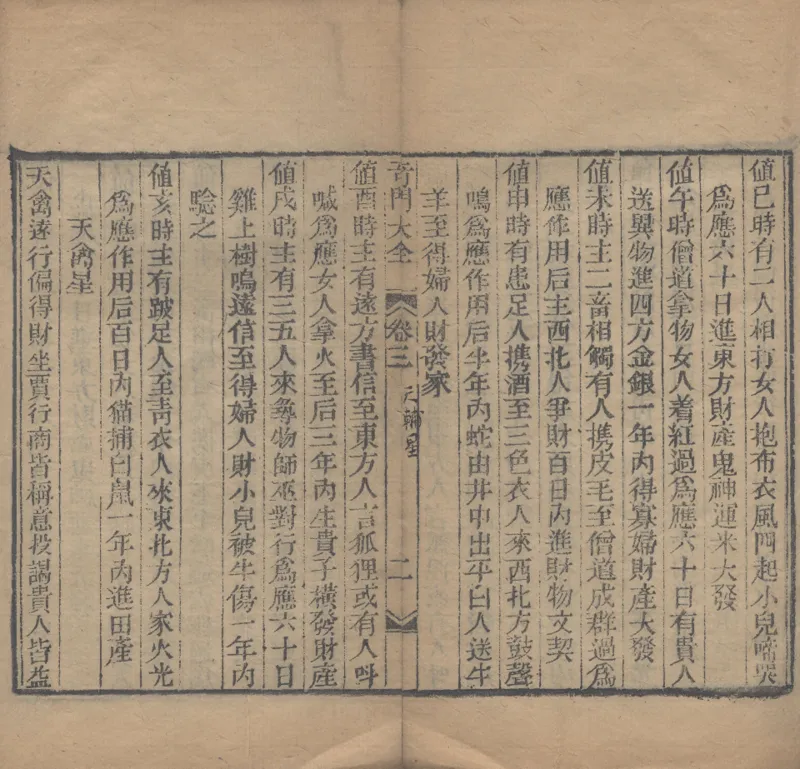 値巳時有二人相打女人抱布衣風四起小兒啼哭
爲應六十日進東方財產鬼神運米大發
値午時僧道拿物女人着紅過爲應六十日有貴人
送異物進四方金銀一年內得寡婦財產大發
値未時主二畜相觸有人携皮毛至僧道成群過爲
應作用后主西北人爭財百日內進財物文契
値申時有患足人携酒至三色衣人來西北方鼓聲
鳴爲應作用后半年內蛇由井中出平白人送牛
羊至得婦人財發家
奇門大全 卷三 天輔星 二
値酉時主有遠方書信至東方人言狐狸或有人呌
喊爲應女人拿火至后三年內生貴子橫發財產
値戌時主有三五人來尋物師巫對行爲應六十日
雞上樹鳴遠信至得婦人財小兒被牛傷一年內
驗之
値亥時主有跛足人至靑衣人來東北方人家火光
爲應作用后百日內猫捕白鼠一年內進田產
天禽星
天禽遠行偏得財坐賈行商皆稱意投謁貴人皆益